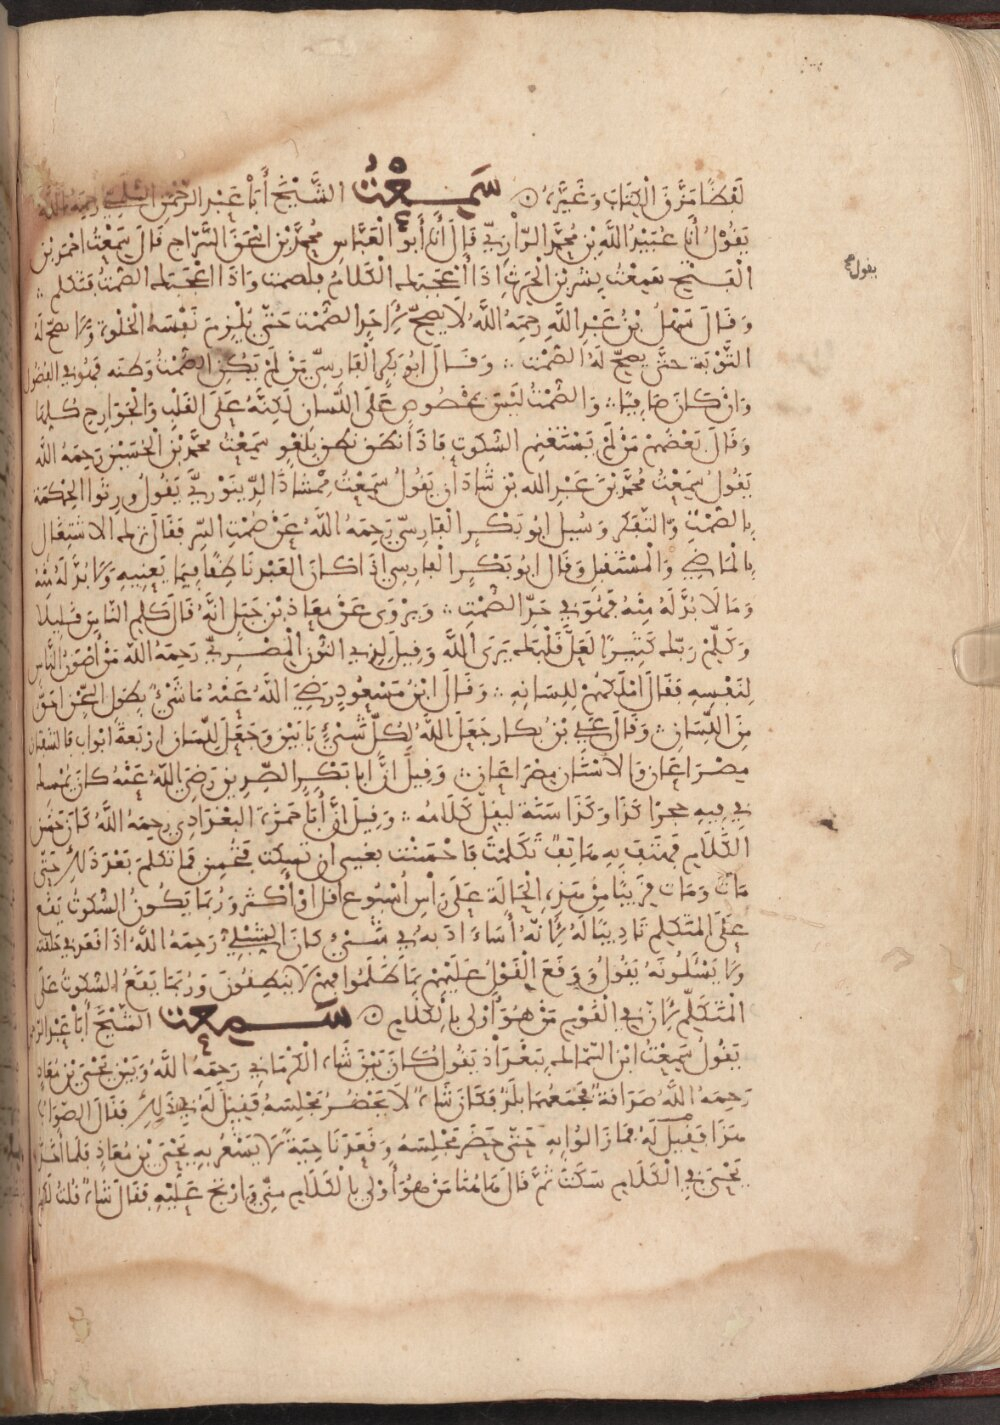 لفظا مزق الكتاب وغيره ۞ سمعت الشيخ أبا عبد الرحمن السلمي رحمه الله
يقول أنا عبيد الله بن محمد الرازي قال أنا أبو العباس محمد بن اسحق السراج قال سمعت احمد بن
الفتح سمعت بشر بن الحرث اذا أعجبك الكلام فاصمت واذا اعجبك الصمت فتكلم
يقول
وقال سهل بن عبد الله رحمه الله لا يصح لأحد الصمت حتى يلزم نفسه الخلوة ولا يصح له
التوبة حتى يصح له الصمت وقال ابو بكر الفارسي من لم يكن الصمت وطنه فهو في الفضول
وان كان صامتا والصمت ليس بمخصوص على اللسان لكنه على القلب والجوارح كلها
وقال بعضهم من لم يستغنم السكوت فاذا نطق نطق بلغو سمعت محمد بن الحسين رحمه الله
يقول سمعت محمد بن عبد الله بن شاذان يقول سمعت ممشاذ الدينوري يقول ورثوا الحكمة
بالصمت والتفكر وسيل ابو بكر الفارسي رحمه الله عن صمت السر فقال ترك الاشتغال
بالماضي والمستقبل وقال ابو بكر الفارسي اذا كان العبد ناطقا فيما يعنيه ولا بد له منه
وما لا بد له منه فهو في حد الصمت ويروى عن معاذ بن جبل انه قال كلم الناس قليلا
وكلم ربك كثيرا لعل قلبك يرى الله وقيل لذي النون المصري رحمه الله من أصون الناس
لنفسه فقال املكهم للسانه وقال ابن مسعود رضي الله عنه ما شيء بطول السجن احق
من اللسان وقال علي بن بكار جعل الله لكل شيء بابين وجعل للسان اربعة ابواب فالشفتان
مصراعان والاسنان مصراعان وقيل ان ابا بكر الصديق رضي الله عنه كان يمسك
في فيه حجرا كذا وكذا سنة ليقل كلامه وقيل ان أبا حمزة البغدادي رحمه الله كان حسن
الكلام فهتف به هاتف تكلمت فاحسنت بقي ان تسكت فتحسن فما تكلم بعد ذلك حتى
مات ومات قريبا من هذه الحالة على رأس أسبوع أقل أو أكثر وربما يكون السكوت يقع
على المتكلم تاديبا له لانه أساء ادبه في شيء كان الشبلي رحمه الله اذا قعد في حلقته
ولا يسئلونه يقول ووقع القول عليهم بما ظلموا فهم لا ينطقون وربما يقع السكوت على
المتكلم لان في القوم من هو أولى بالكلام ۞ سمعت الشيخ أبا عبد الرحمن
يقول سمعت ابن السماك ببغداذ يقول كان بين شاه الكرماني رحمه الله وبين يحيى بن معاذ
رحمه الله صداقة فجمعهما بلد فكان شاه لا يحضر مجلسه فقيل له في ذلك فقال الصواب
هذا فقيل له فما زالوا به حتى حضر مجلسه وقعد ناحية لا يشعر به يحيى بن معاذ فلما أخذ
يحيى في الكلام سكت ثم قال هاهنا من هو أولى بالكلام مني وارتج عليه فقال شاه قلت لكم